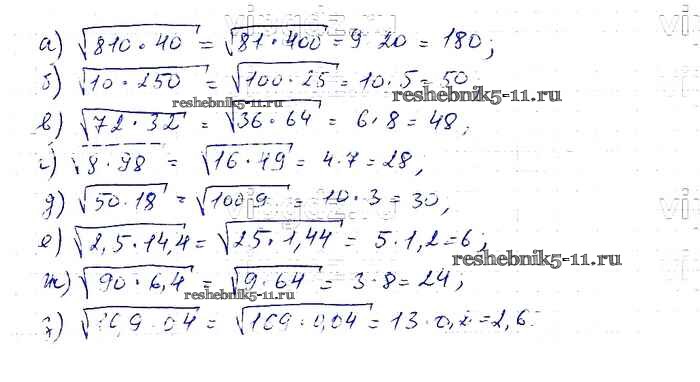 а) √810·40 = √81·400 = 9 20 = 180;
б) √10·250 = √100·25 = 10·5 = 50
reshebnik5-11.ru
reshebnik5-11.ru
в) √72·32 = √36·64 = 6·8 = 48;
г) √8·98 = √16·49 = 4·7 = 28,
д) √50·18 = √100 9 = 10·3 = 30,
е) √2,5·14,4 = √25·1,44 = 5·1,2 = 6;
reshebnik5-11.ru
ж) √90·6,4 = √9·64 = 3·8 = 24;
reshebnik5-11.ru
√169·0,04 = 13·0, = 2,6